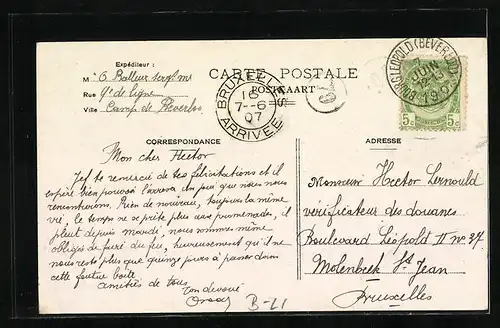 Expéditeur :
CARTE POSTALE
POSTKAART
M
Rue de Ligne
Ville Camp de Beverloo
BRUXELLES
16
7-6
07
ARRIVÉE
BOURG-LÉOPOLD (BEVERLOO)
JUIN
5c 5c
CORRESPONDANCE
ADRESSE
Mon cher Hector
Jef te remercie de tes félicitations et il
espère bien pouvoir l'arroser un peu que nous nous
rencontrerons. Rien de nouveau, toujours la même
vie, le temps ne se prête plus aux promenades, il
pleut depuis mardi, nous sommes même
obligés de faire du feu, heureusement qu'il ne
nous reste plus que quinze jours à passer dans
cette foutue boîte
amitiés de tous
ton dévoué
Monsieur Hector Lernould
vérificateur des douanes
Boulevard Léopold II n° 37
Molenbeek St Jean
Bruxelles
B-L1